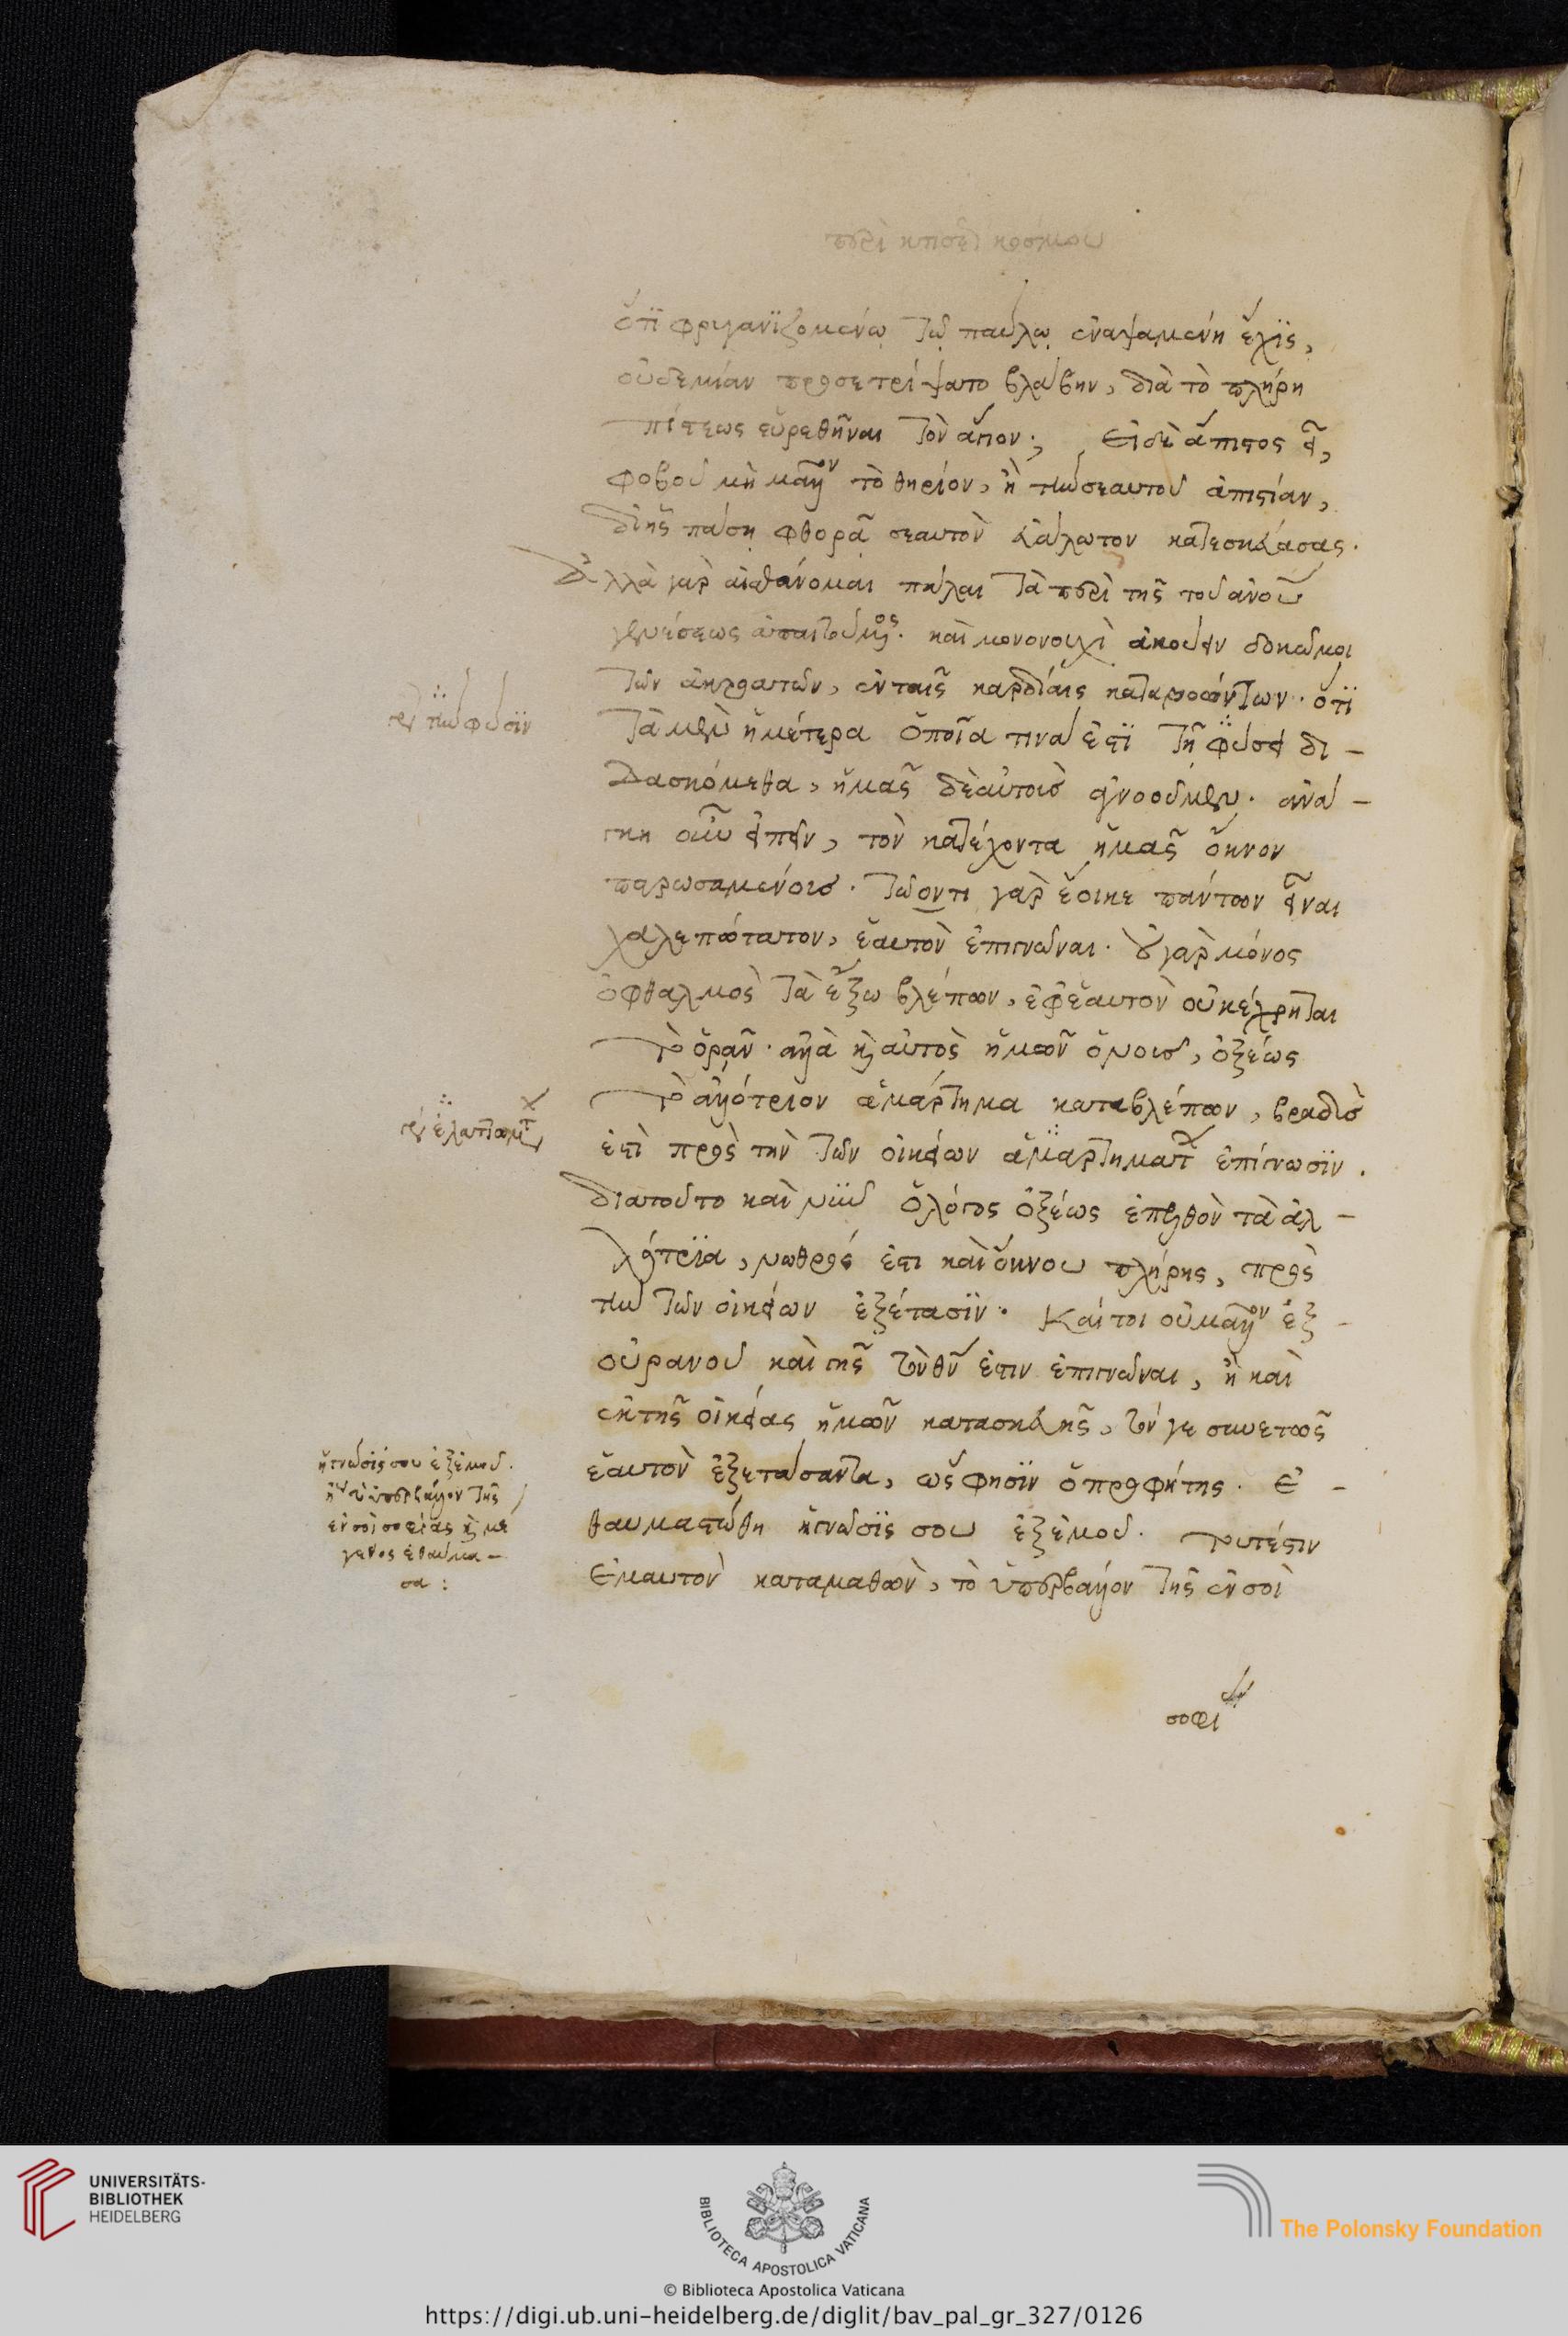 περὶ κτίσεως κόσμου
ὅτι φρυγανιζομένω τῶ παύλω ἐναψαμένη ἔχις,
οὐδεμίαν προσετρίψατο βλάβην, διὰ τὸ πλήρη
πίστεως εὑρεθῆναι τὸν ἅγιον; εἰ δὲ ἄπιστος εἶ,
φοβοῦ μὴ μᾶλλον τὸ θηρίον, ἢ τὴν σεαυτοῦ ἀπιστίαν,
δι ἧς πάση φθορᾶ σεαυτὸν εὐάλωτον κατεσκεύασας.
ἀλλὰ γὰρ αἰσθάνομαι πάλαι τὰ περὶ τῆς τοῦ ἀνοῦ
γενέσεως ἀπαιτούμενος. καὶ μονονουχὶ ἀκούειν δοκῶ μοι
τῶν ἀκροατῶν, ἐν ταῖς καρδίαις καταβοώντων. ὅτι
τὰ μὲν ἡμέτερα ὁποῖα τινά ἐστι τῆ φύσει δι-
δασκόμεθα, ἡμᾶς δὲ αὐτοὺς ἀγνοοῦμεν. ἀνάγ-
κη οὖν εἰπεῖν, τὸν κατέχοντα ἡμᾶς ὄκνον
παρωσαμένους. τῶ ὄντι γὰρ ἔοικε πάντων εἶναι
χαλεπώτατον, ἑαυτὸν ἐπιγνῶναι. οὐ γὰρ μόνος
ὀφθαλμὸς τὰ ἔξω βλέπων, ἐφ ἑαυτὸν οὐ κέχρηται
τῶ ὁρᾶν. ἀλλὰ κ αὐτὸς ἡμῶν ὁ νοῦς, ὀξέως
τὸ ἀλλότριον ἁμάρτημα καταβλέπων, βραδύς
ἐστὶ πρὸς τὴν τῶν οἰκείων ἁμαρτημάτ ἐπίγνωσιν.
διὰ τοῦτο καὶ νῦν ὁ λόγος ὀξέως ἐπελθὼν τὰ ἀλ-
λότρια, νωθρός ἐστι καὶ ὄκνου πλήρης, πρὸς
τὴν τῶν οἰκείων ἐξέτασιν. καίτοι οὐ μᾶλλον ἐξ
οὐρανοῦ καὶ γῆς τὸν θν ἐστιν ἐπιγνῶναι, ἢ καὶ
ἐκ τῆς οἰκείας ἡμῶν κατασκευῆς, τόν γε συνετῶς
ἑαυτὸν ἐξετάσαντα, ὥς φησιν ὁ προφήτης. ἐ-
θαυμαστώθη ἡ γνῶσίς σου ἐξ ἐμοῦ. τουτέστιν
ἐμαυτὸν καταμαθὼν, τὸ ὑπερβάλλον τῆς ἐν σοὶ
σοφίας
τὴν φύσιν
ἐλαττωμάτ
ἡ γνῶσίς σου ἐξ ἐμοῦ.
τὸ ὑπερβάλλον τῆς
ἐν σοὶ σοφίας κ με
γεθος ἐθαύμα-
σα :
UNIVERSITÄTS-
BIBLIOTHEK
HEIDELBERG
BIBLIOTECA APOSTOLICA VATICANA
The Polonsky Foundation
© Biblioteca Apostolica Vaticana
https://digi.ub.uni-heidelberg.de/diglit/bav_pal_gr_327/0126